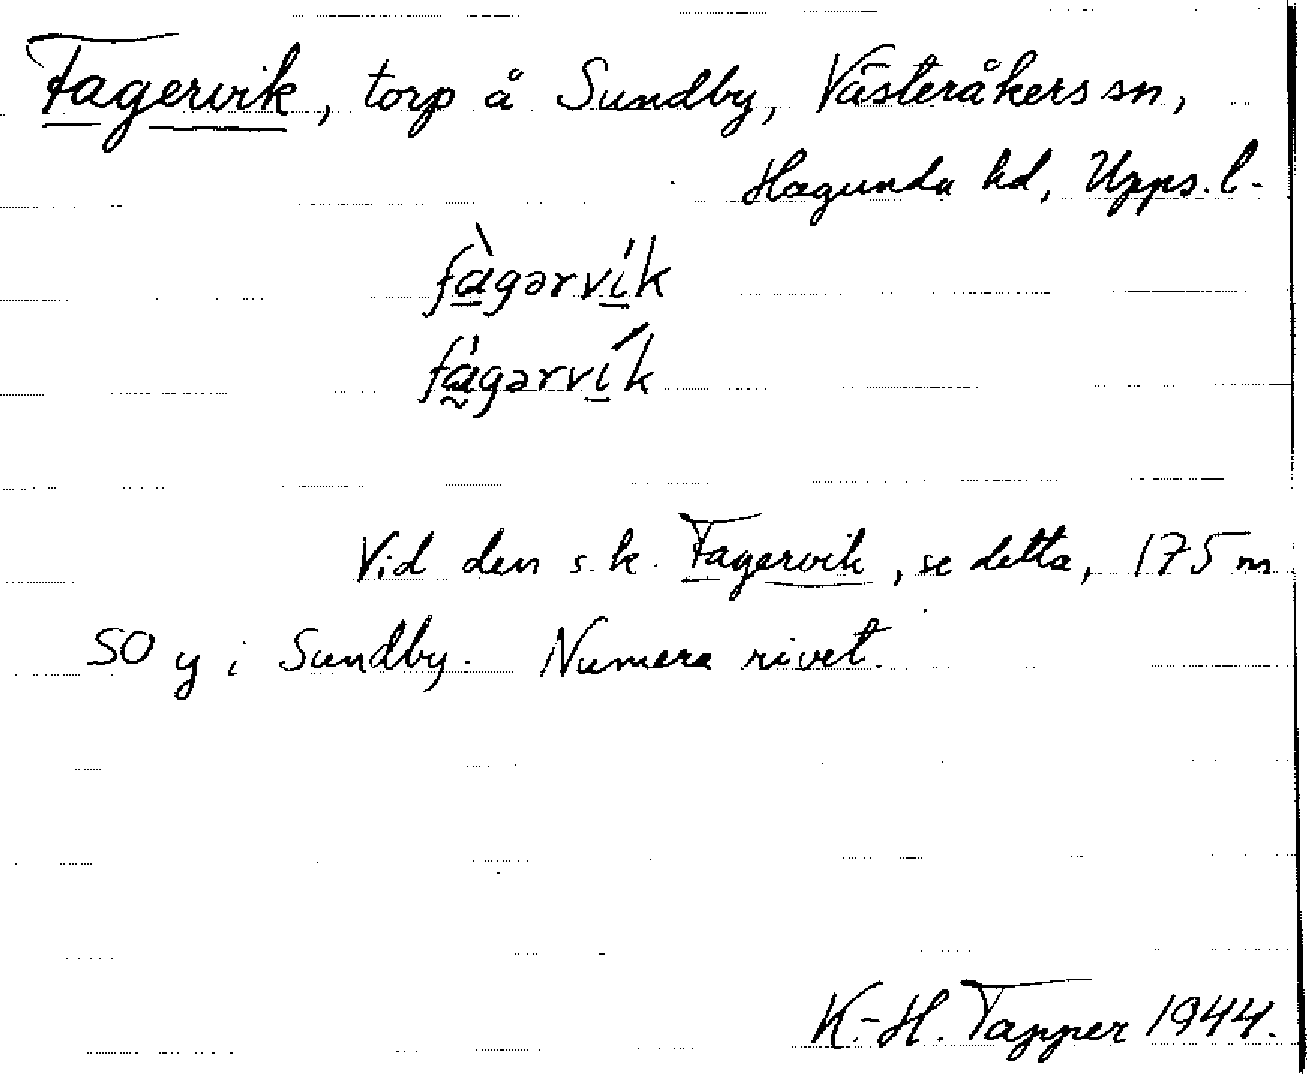 Fagervik, torp å Sundby, Västeråkers sn,
Hagunda hd, Upps. l.
fàgərvík
fágərvík
Vid den s. k. Fagervik, se detta, 175 m
SO y i Sundby. Numera rivet.
K.-H. Tapper 1944.